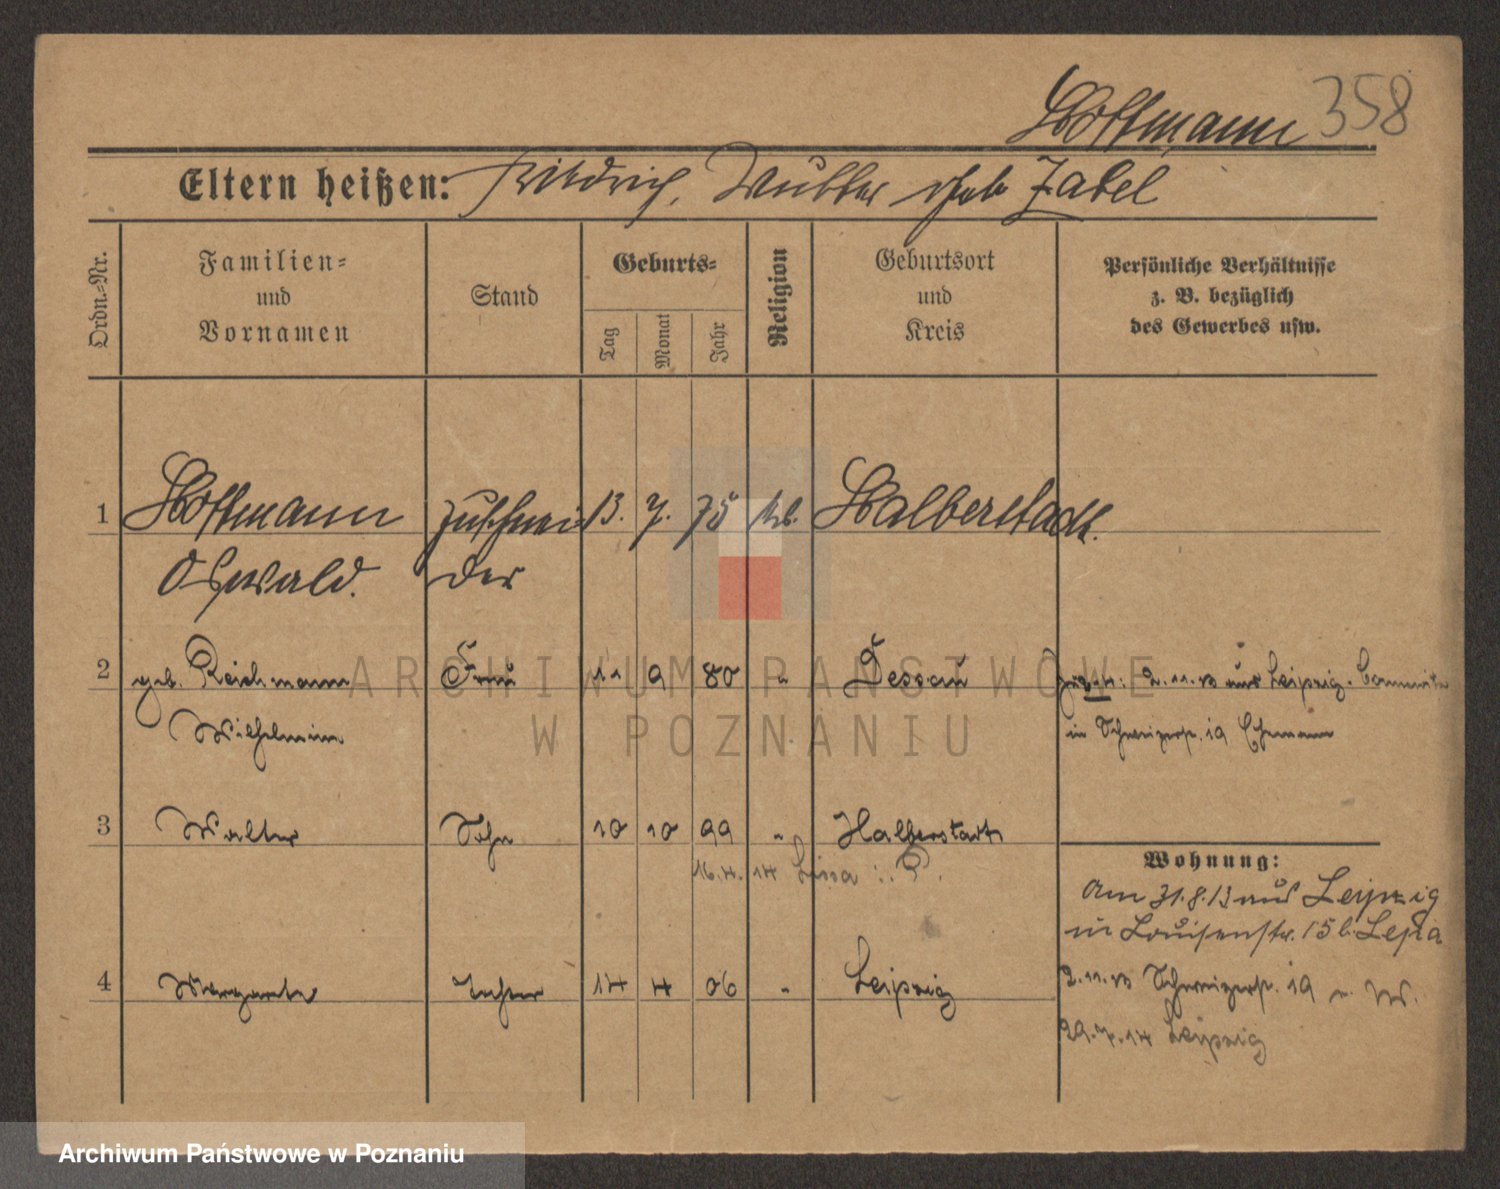 Hoffmann 358
Eltern heißen: Friedrich, geb Zabel
Ordn.=Nr.
Familien=
und
Vornamen
Stand
Geburts=
Tag
Monat
Jahr
Religion
Geburtsort
und
Kreis
Persönliche Verhältnisse
z. B. bezüglich
des Gewerbes usw.
1 Hoffmann Zuschnei 13. 7. 75 Halberstadt.
Oswald. der
2 geb. Reichmann Frau 11 9 80 " Dessau 2.11.13 aus Leipzig.
Wilhelmine in Schweizerstr. 19 Ehemann
3 Walter Sohn 10 10 99 " Halberstadt
16.4.14 Lissa i. P.
Wohnung:
Am 31.8.13 aus Leipzig
in Louisenstr. 15 b.
4 Margarete Tochter 14 4 06 " Leipzig
2.11.13 Schweizerstr. 19
29.7.14 Leipzig
ARCHIWUM PAŃSTWOWE
W POZNANIU
Archiwum Państwowe w Poznaniu